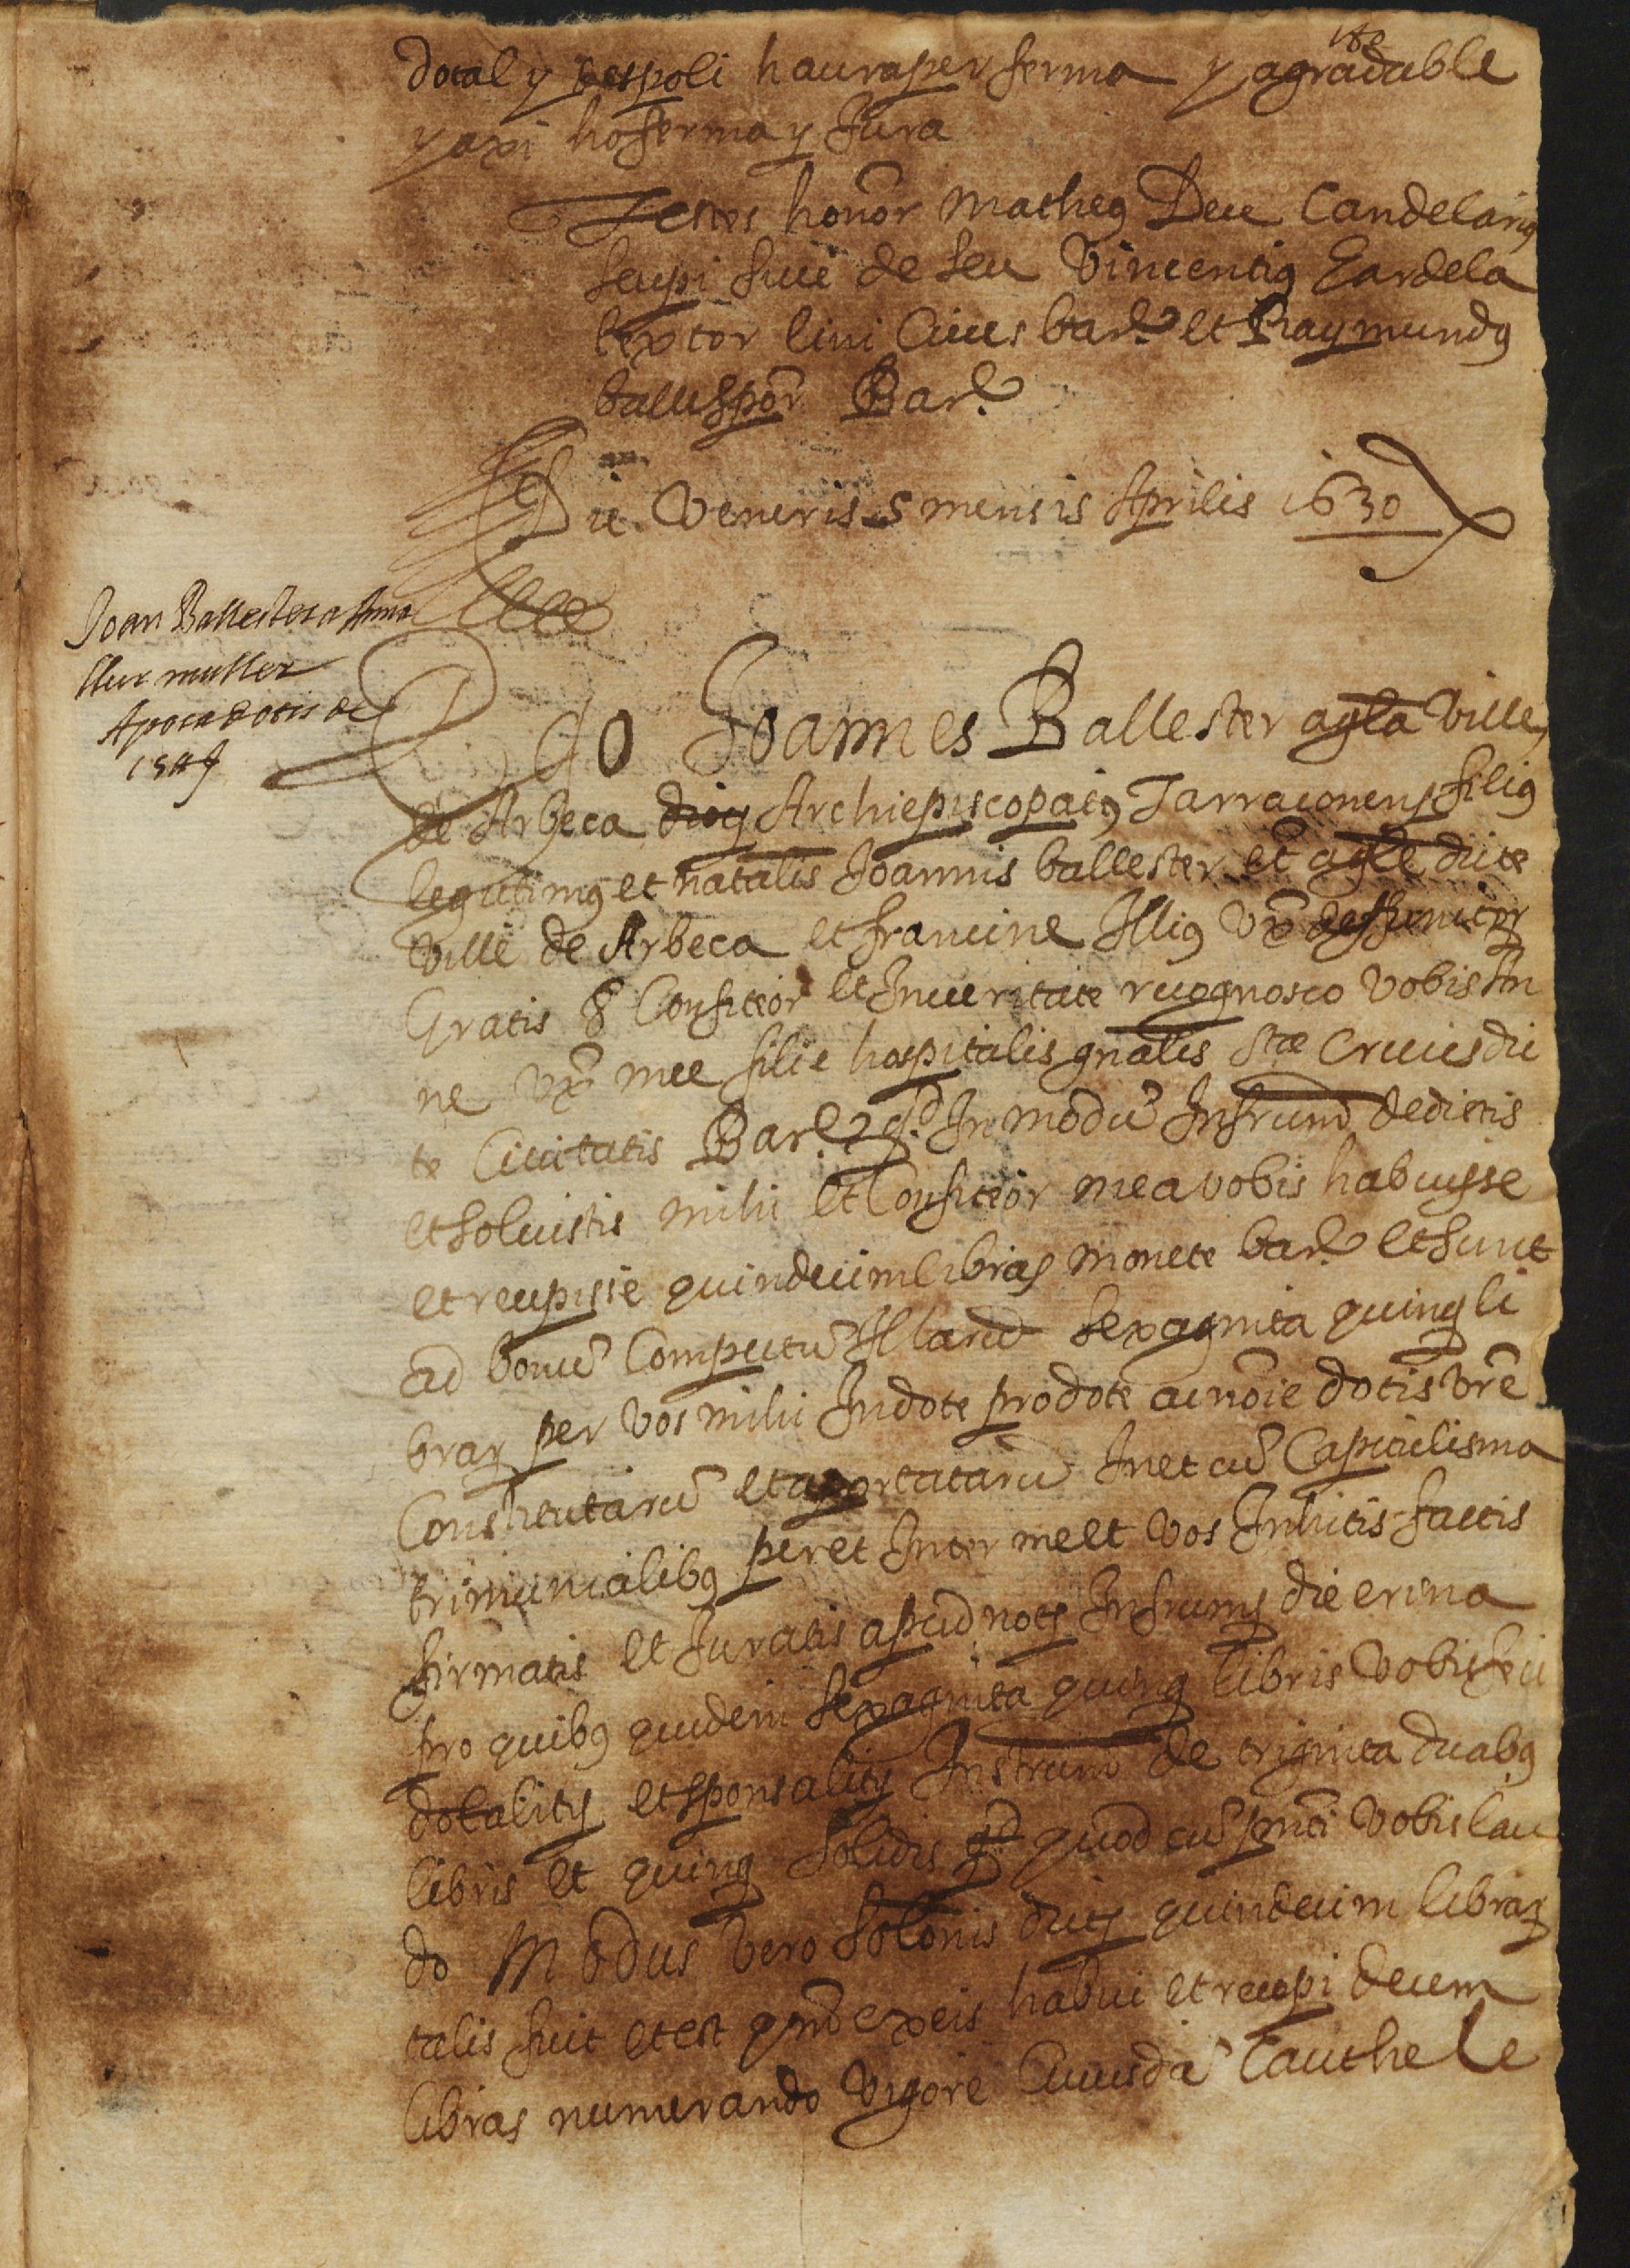 dotal y espoli haura per ferma y agradable
y axi ho ferma y Jura
Testes honor Matheus Deu Candelarius
sepi sive de seu Vincentius Gardela
textor lini Cives bar. et Raymundus
Bar.
Die Veneris 5 mensis Aprilis 1630
Joan Ballester a Anna
sua muller
Apoca dotis de
15 ll
Ego Joannes Ballester agla ville
de Arbeca Archiepiscopatus Tarraconens filius
legittimus et natalis Joannis ballester et dicte
ville de Arbeca et francine Illius Vx deffunctor
Gratis & Confiteor et In veritate recognosco vobis An
ne Vx mee filie hospitalis gnalis Stae Crucis dic
te Civitatis Bar. qd In modu Infrum dedistis
et solvistis mihi et Confiteor me a vobis habuisse
et recepisse quindecim libras monete bar. et sunt
ad bonu Computu Illaru sexaginta quinq li
brar per vos mihi In dote pro dote ac noie dotis vre
Constitutaru et aportataru In et cu Capitulis ma
trimonialibus per et Inter me et vos Initis factis
firmatis et Juratis apud nots Infrums die
pro quibus quidem sexaginta quinq libris vobis feci
dotalitys et sponsalitys Instrum de triginta duabus
libris et quinq solidis quod cu pnti vobis lau
do Modus vero solonis dictys quindecim librar
talis fuit et est qm ex eis habui et recepi decem
libras numerando vigore Cuiusda Cauthele